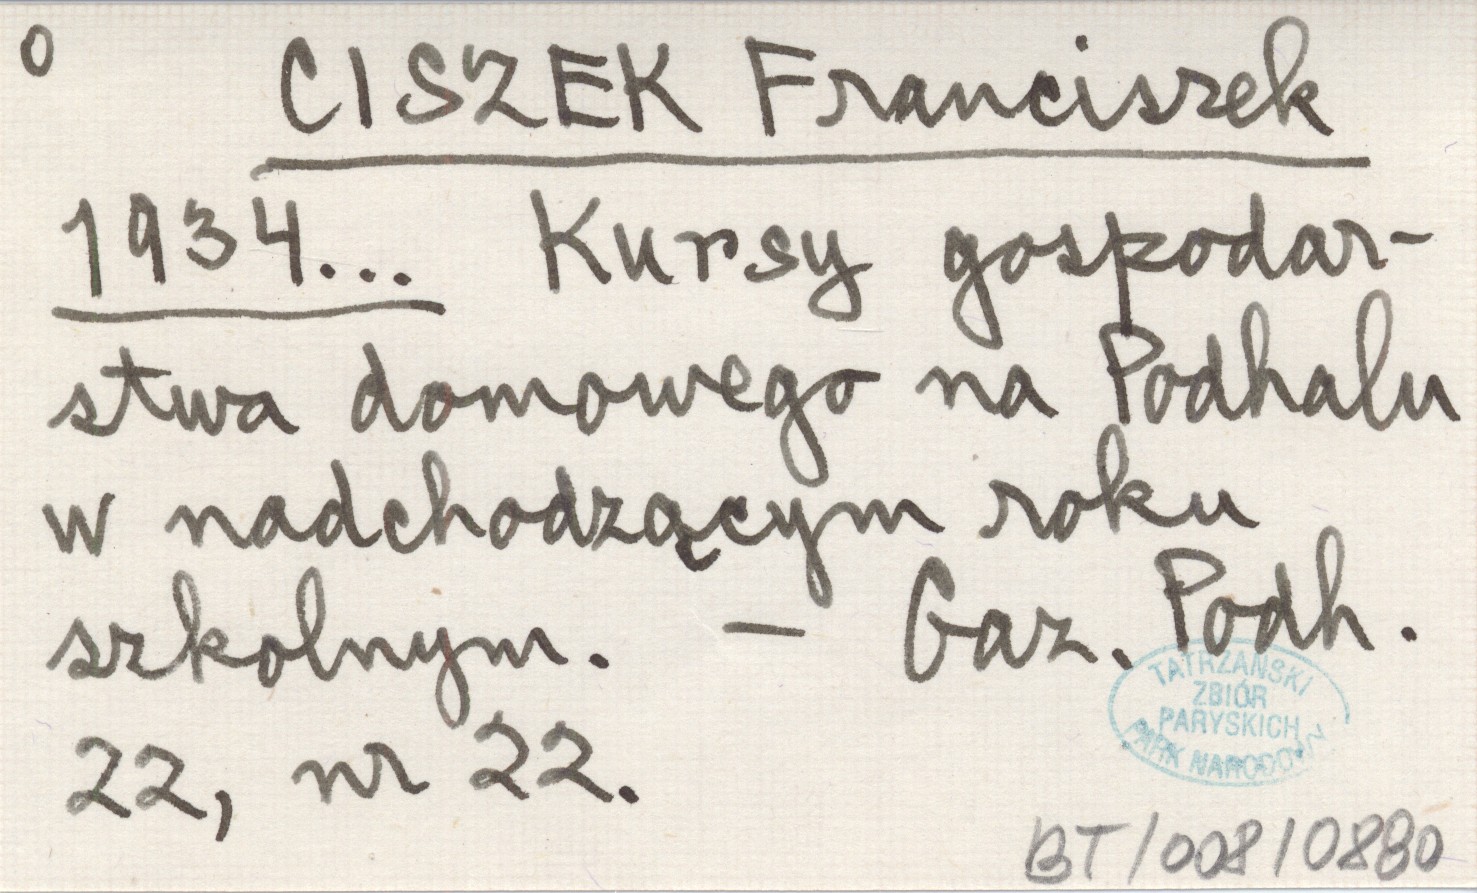 0
CISZEK Franciszek
1934... Kursy gospodar-
stwa domowego na Podhalu
w nadchodzącym roku
szkolnym. — Gaz. Podh.
22, nr 22.
TATRZAŃSKI
ZBIÓR
PARYSKICH
PARK NARODOWY
BT/008/0880